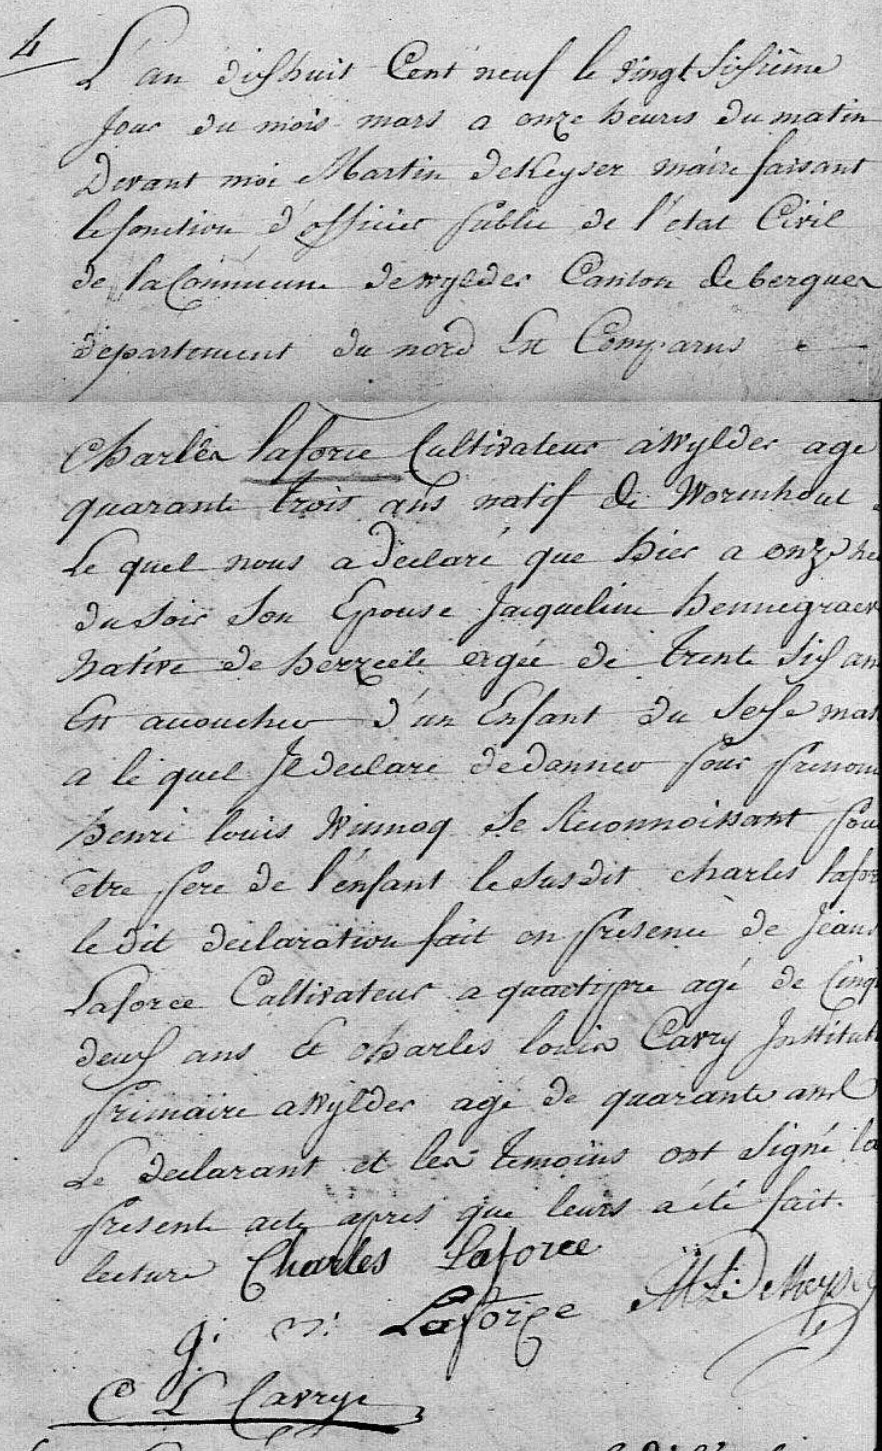 4
L'an dishuit Cent neuf le vingt sisième
jour du mois mars a onze heures du matin
Devant moi Martin deKeyser maire faisant
le fonction d'officier public de l'état Civil
de la Commune de wylder Canton de bergues
departement du nord Est Comparus
Charles laforce Cultivateur a Wylder age
quarante trois ans natif de Wormhout
Le quel nous a declaré que hier a onze he
du soir Son Epouse Jacqueline hennegraev
Native de herzeele agée de trente six an
Est accouchez d'un Enfant du Sexe mal
a le quel Il declare de donner pour prenom
henri louis Winnoq Se Reconnoissant pou
etre pere de l'enfant le Susdit charles lafor
le dit declaration fait en presence de Jean
Laforce Cultivateur a agé de Cinq
deux ans et charles louis Carry Institut
primaire a Wylder agé de quarante ans
Le declarant et les temoins ont Signé la
presente acte apres que leurs a été fait
lecture Charles Laforce
Laforce M L DeKeyse
C L Carrye